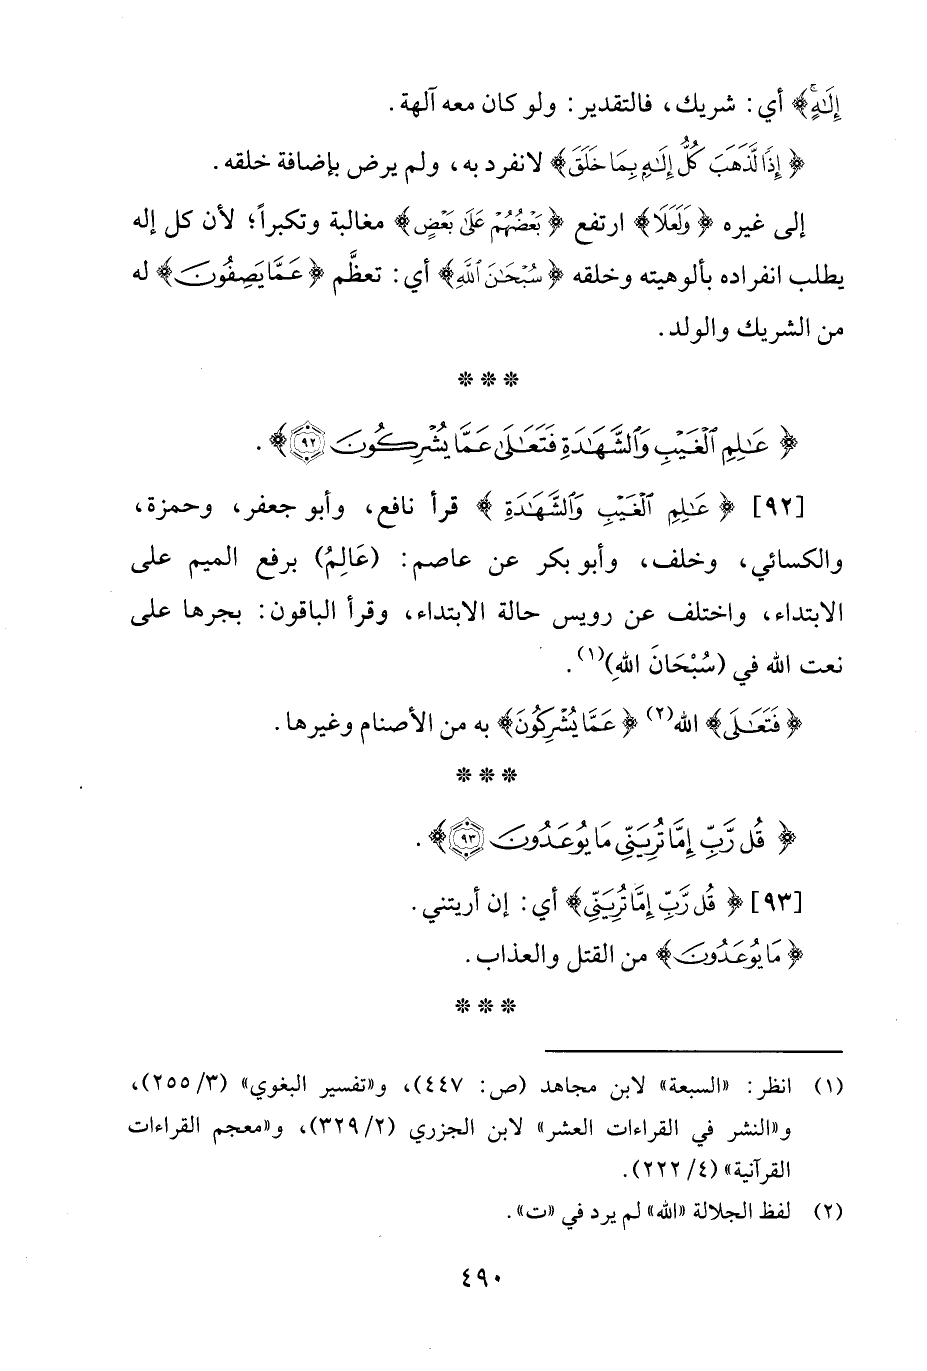 إِلَٰهٍ﴾ أي: شريك، فالتقدير: ولو كان معه آلهة.
﴿إِذًا لَّذَهَبَ كُلُّ إِلَٰهٍ بِمَا خَلَقَ﴾ لانفرد به، ولم يرض بإضافة خلقه.
إلى غيره ﴿وَلَعَلَا﴾ ارتفع ﴿بَعْضُهُمْ عَلَىٰ بَعْضٍ﴾ مغالبة وتكبراً؛ لأن كل إله
يطلب انفراده بألوهيته وخلقه ﴿سُبْحَٰنَ ٱللَّهِ﴾ أي: تعظَّم ﴿عَمَّا يَصِفُونَ﴾ له
من الشريك والولد.
* * *
﴿عَٰلِمِ ٱلْغَيْبِ وَٱلشَّهَٰدَةِ فَتَعَٰلَىٰ عَمَّا يُشْرِكُونَ ٩٢﴾.
[٩٢] ﴿عَٰلِمِ ٱلْغَيْبِ وَٱلشَّهَٰدَةِ﴾ قرأ نافع، وأبو جعفر، وحمزة،
والكسائي، وخلف، وأبو بكر عن عاصم: (عَالِمُ) برفع الميم على
الابتداء، واختلف عن رويس حالة الابتداء، وقرأ الباقون: بجرها على
نعت الله في (سُبْحَانَ اللهِ)(١).
﴿فَتَعَٰلَىٰ﴾ الله(٢) ﴿عَمَّا يُشْرِكُونَ﴾ به من الأصنام وغيرها.
* * *
﴿قُل رَّبِّ إِمَّا تُرِيَنِّي مَا يُوعَدُونَ ٩٣﴾.
[٩٣] ﴿قُل رَّبِّ إِمَّا تُرِيَنِّي﴾ أي: إن أريتني.
﴿مَا يُوعَدُونَ﴾ من القتل والعذاب.
* * *
(١) انظر: «السبعة» لابن مجاهد (ص: ٤٤٧)، و«تفسير البغوي» (٣/ ٢٥٥)،
و«النشر في القراءات العشر» لابن الجزري (٢/ ٣٢٩)، و«معجم القراءات
القرآنية» (٤/ ٢٢٢).
(٢) لفظ الجلالة «الله» لم يرد في «ت».
٤٩٠